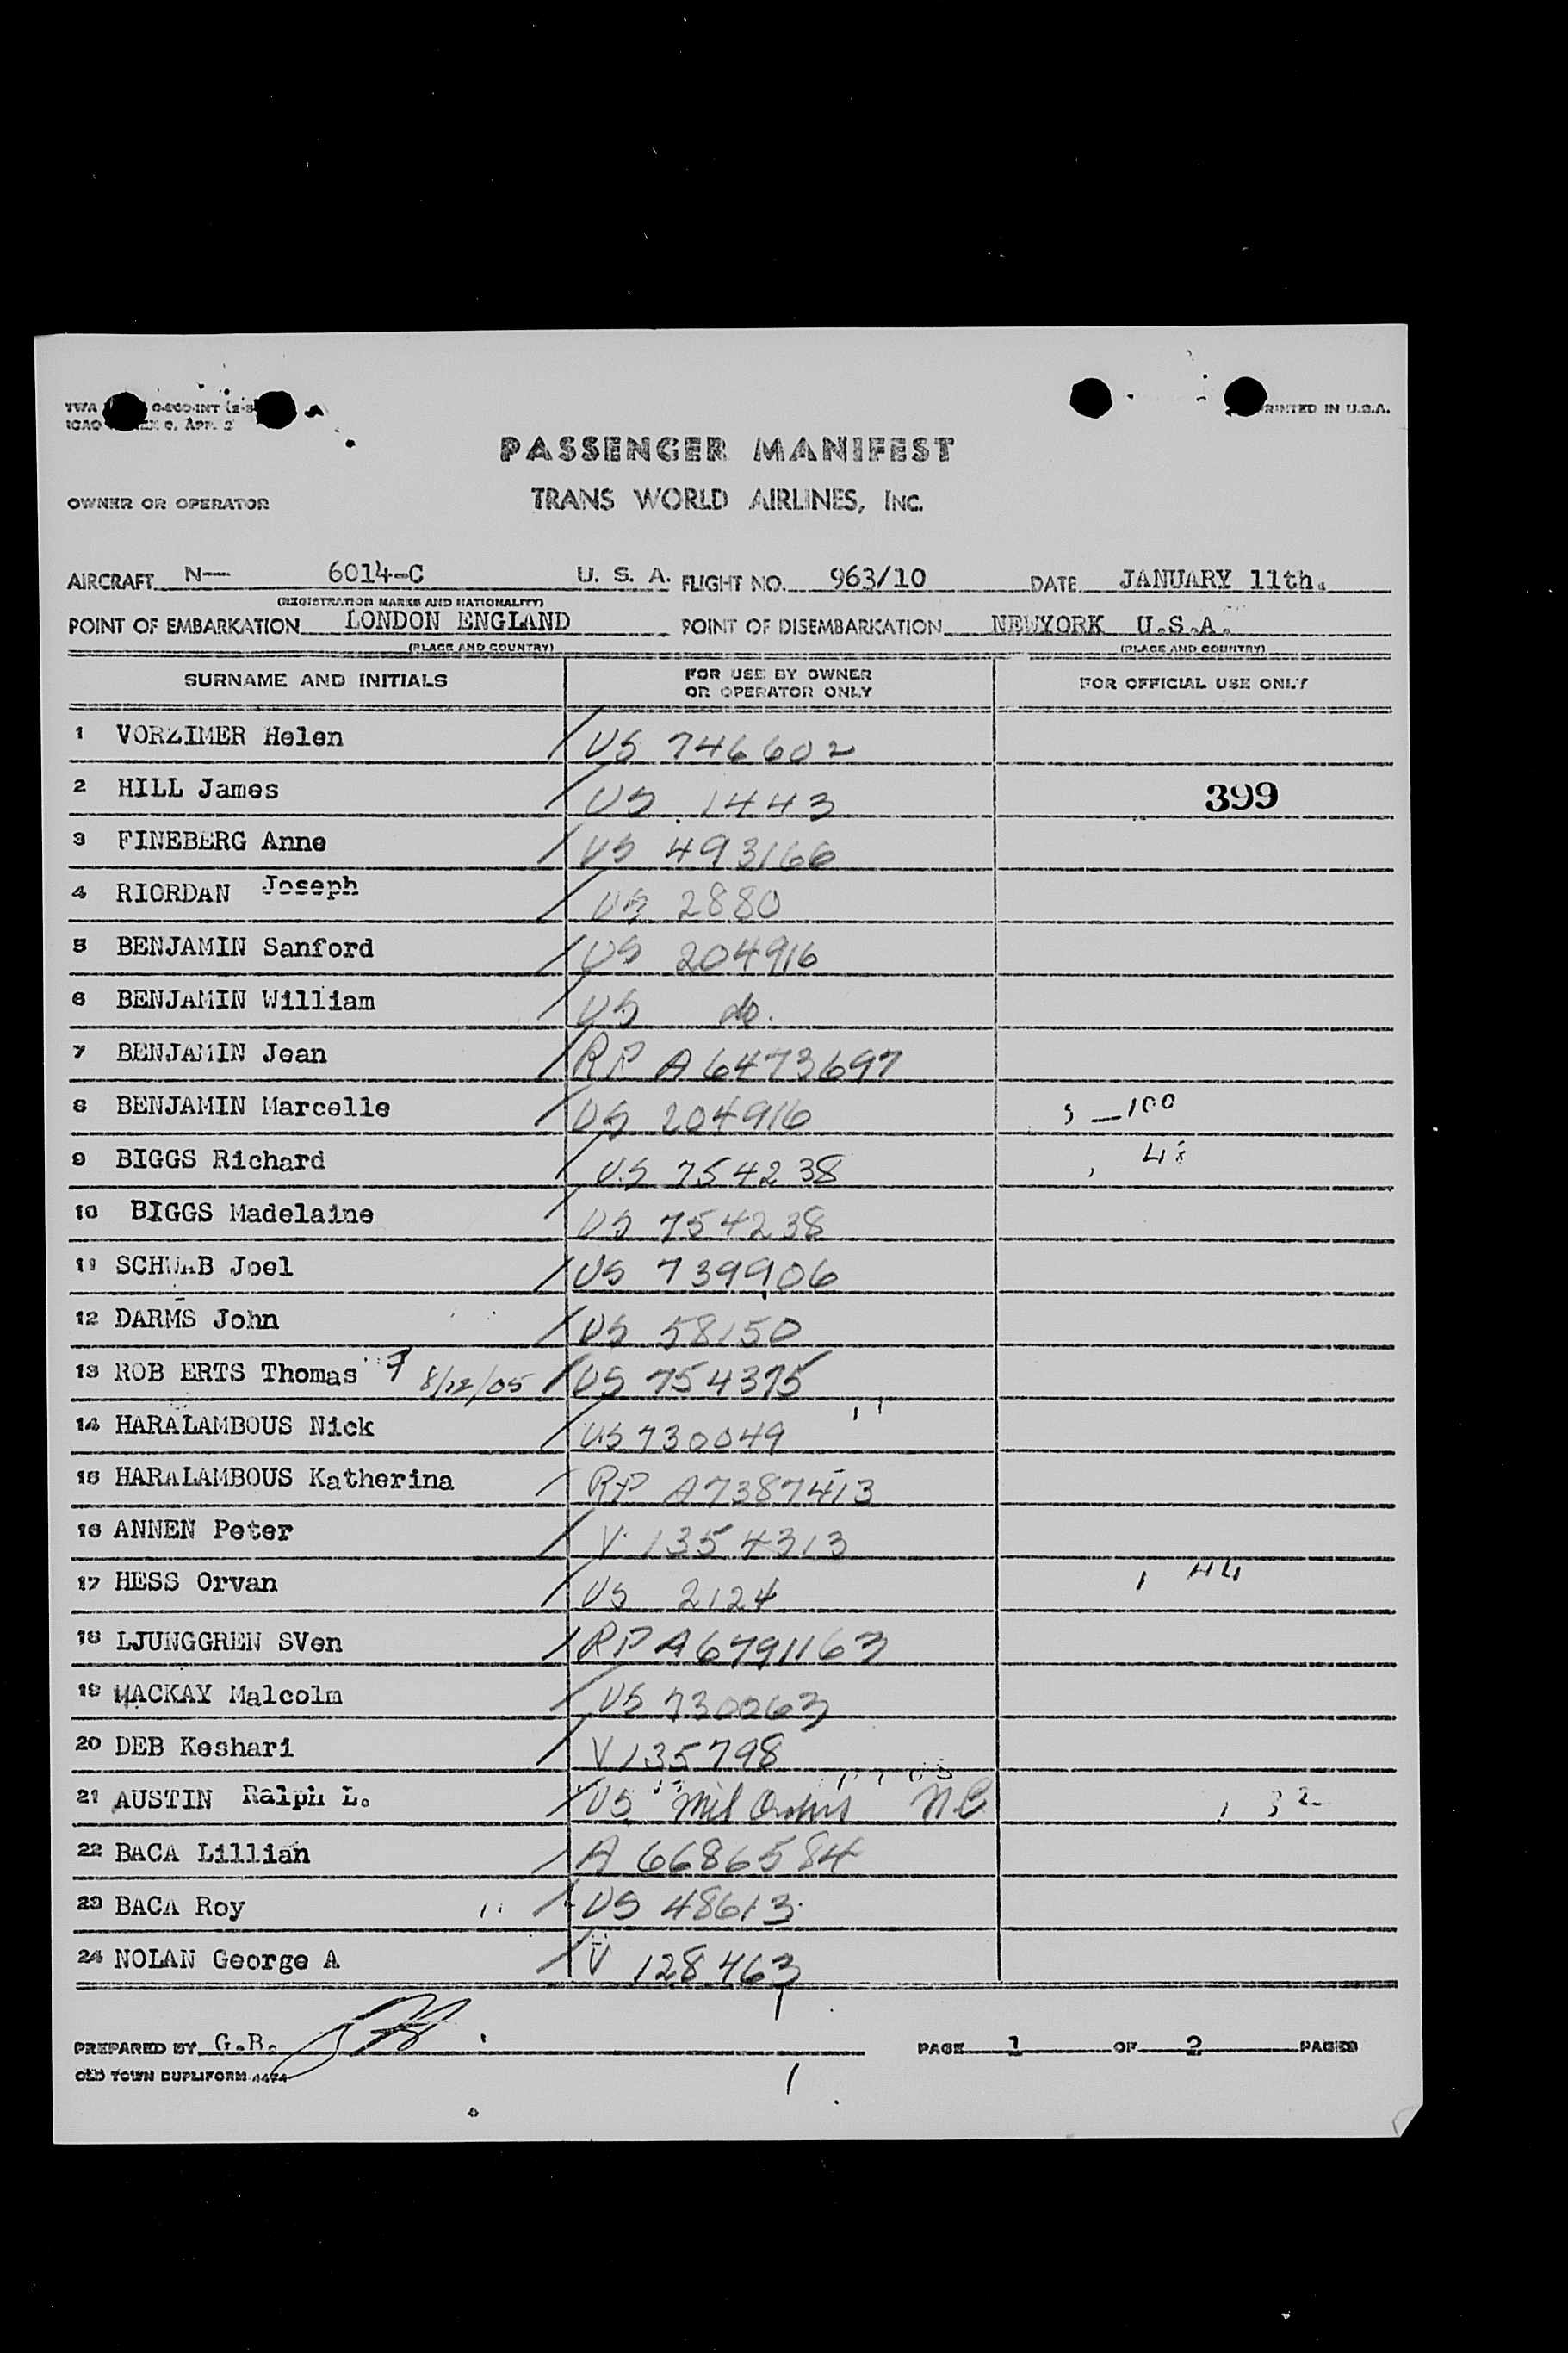 PRINTED IN U.S.A.
PASSENGER MANIFEST
OWNER OR OPERATOR TRANS WORLD AIRLINES, INC.
AIRCRAFT N— 6014-C U. S. A. FLIGHT NO. 963/10 DATE JANUARY 11th.
(REGISTRATION MARKS AND NATIONALITY)
POINT OF EMBARKATION LONDON ENGLAND POINT OF DISEMBARKATION NEWYORK U.S.A.
(PLACE AND COUNTRY) (PLACE AND COUNTRY)
SURNAME AND INITIALS FOR USE BY OWNER OR OPERATOR ONLY FOR OFFICIAL USE ONLY
1 VORZIMER Helen US 746602
2 HILL James US 1443 399
3 FINEBERG Anne US 493166
4 RIORDAN Joseph US 2880
5 BENJAMIN Sanford US 204916
6 BENJAMIN William US do.
7 BENJAMIN Jean RP A6473697
8 BENJAMIN Marcelle US 204916 100
9 BIGGS Richard US 754238
10 BIGGS Madelaine US 754238
11 SCHWAB Joel US 739906
12 DARMS John US 58150
13 ROB ERTS Thomas 8/12/05 US 754375
14 HARALAMBOUS Nick US 730049
15 HARALAMBOUS Katherina RP A7387413
16 ANNEN Peter V 1354313
17 HESS Orvan US 2124
18 LJUNGGREN SVen RP A6791163
19 MACKAY Malcolm US 730063
20 DEB Keshari V 135798
21 AUSTIN Ralph L. US Mil Orders NC
22 BACA Lillian A 6686584
23 BACA Roy US 48613
24 NOLAN George A V 128463
PREPARED BY G.B. PAGE 1 OF 2 PAGES
OLD TOWN DUPLIFORM 4474